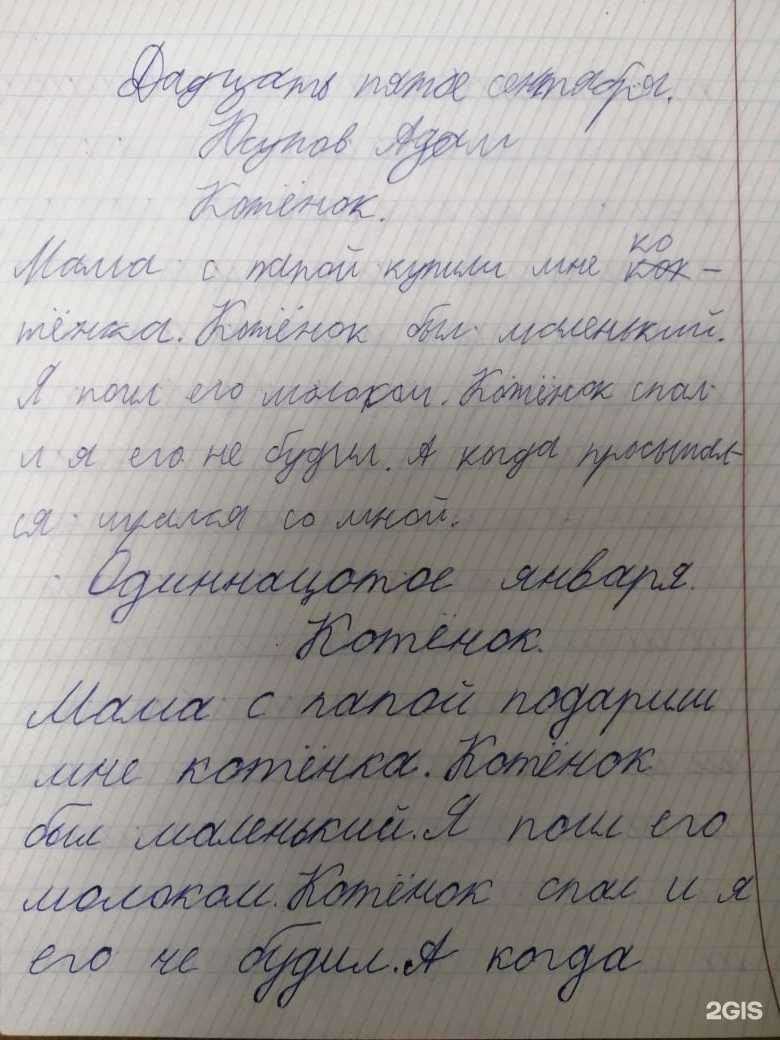 Дадцать пятое сентября.
Юсупов Адам
Котёнок.
Мама с папой купили мне ко
кок-
тёнка. Котёнок был маленький.
Я поил его молоком. Котёнок спал
и я его не будил. А кагда просыпал-
ся игрался со мной.
Одиннацотое января.
Котёнок.
Мама с папой подарили
мне котёнка. Котёнок
был маленький. Я поил его
молоком. Котёнок спал и я
его не будил. А когда
2GIS